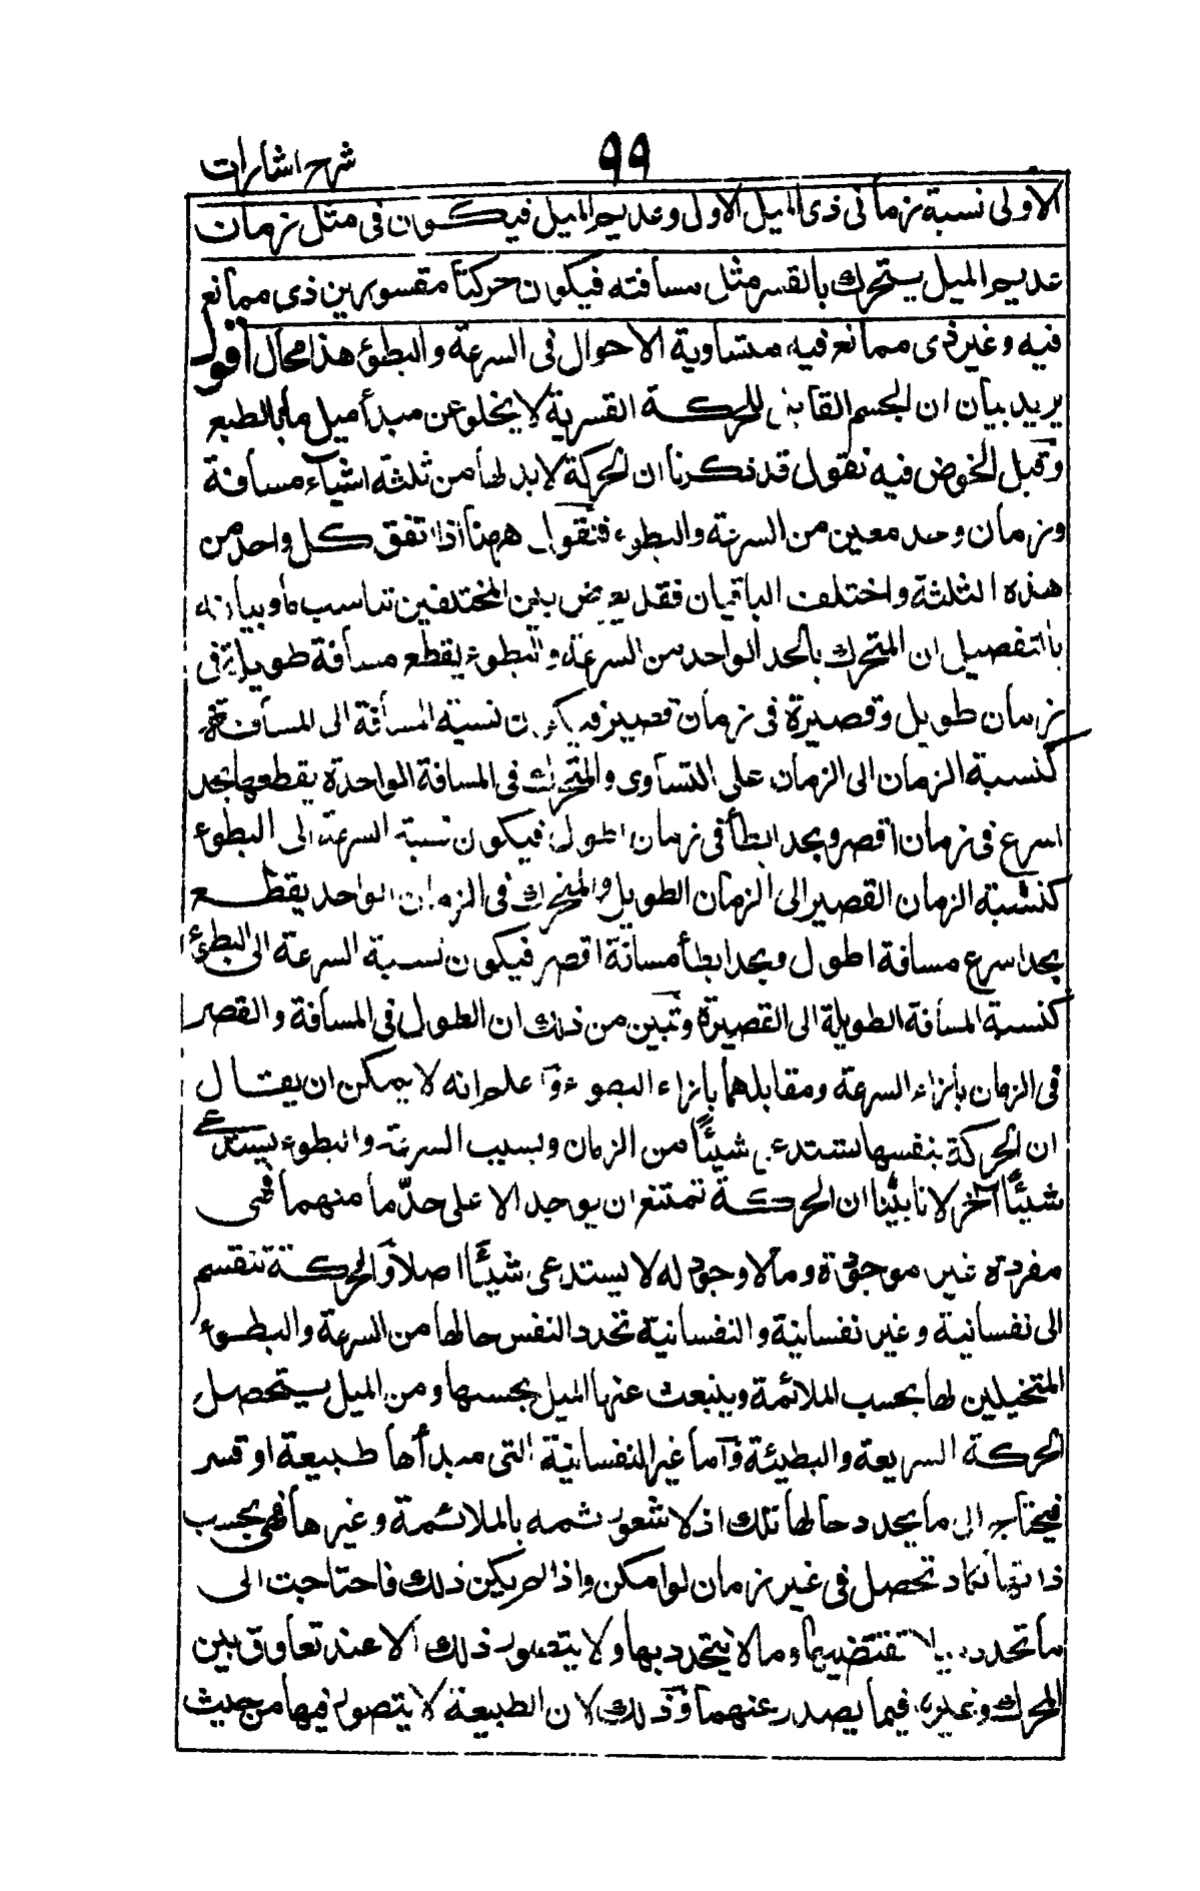 شرح اشارات
٩٩
الاولى نسبة زماني ذى الميل الاول وعديم الميل فيكون فى مثل زمان
عديم الميل يتحرك بالقسر مثل مسافته فيكون حركتا مقسورين ذى ممانع
فيه وغير ذى ممانع فيه متساوية الاحوال فى السرعة والبطؤ هذا محال اقول
يريد بيان ان الجسم القابل للحركة القسرية لا يخلو عن مبدأ ميل ما بالطبع
وقبل الخوض فيه نقول قد ذكرنا ان الحركة لا بد لها من ثلثة اشياء مسافة
وزمان وحد معين من السرعة والبطوء فنقول ههنا اذا اتفق كل واحد من
هذه الثلثة واختلف الباقيان فقد يعرض بين المختلفين تناسب ما وبيانه
بالتفصيل ان المتحرك بالحد الواحد من السرعة والبطوء يقطع مسافة طويلة فى
زمان طويل وقصيرة فى زمان قصير فيكون نسبة المسافة الى المسافة
كنسبة الزمان الى الزمان على التساوى والمتحرك فى المسافة الواحدة يقطعها بحد
اسرع فى زمان اقصر وبحد ابطأ فى زمان اطول فيكون نسبة السرعة الى البطوء
كنسبة الزمان القصير الى الزمان الطويل والمتحرك فى الزمان الواحد يقطع
بحد اسرع مسافة اطول وبحد ابطأ مسافة اقصر فيكون نسبة السرعة الى البطئ
كنسبة المسافة الطويلة الى القصيرة وتبين من ذلك ان الطول فى المسافة والقصر
فى الزمان بأزاء السرعة ومقابلهما بأزاء البطوء واعلم انه لا يمكن ان يقال
ان الحركة بنفسها تستدعى شيئا من الزمان وبسبب السرعة والبطوء يستدعى
شيئا آخر لانا بينا ان الحركة تمتنع ان يوجد الا على حد ما منهما فهى
مفردة غير موجودة وما لا وجود له لا يستدعى شيئا اصلا والحركة تنقسم
الى نفسانية وغير نفسانية والنفسانية تحدد النفس حالها من السرعة والبطوء
المتخيلين لها بحسب الملائمة وينبعث عنها الميل بحسبها ومن الميل يتحصل
الحركة السريعة والبطيئة واما غير النفسانية التى مبدأها طبيعة او قسر
فيحتاج الى ما يحدد حالها تلك اذ لا شعور ثمه بالملائمة وغيرها فهى بحسب
ذاتها تكاد تحصل فى غير زمان لو امكن واذ لم يكن ذلك فاحتاجت الى
ما تحدد ولا يتصور ذلك الا عند تعاوق بين
المحرك وغيره فيما يصدر عنهما وذلك لان الطبيعة لا يتصور فيها من حيث